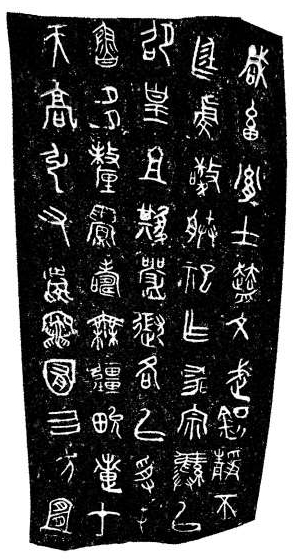 咸畜胤士𧽙文武鎮靜不
廷虔敬朕祀乍𠫑宗彝以
卲皇且𡢁嚴𢕌各以受屯
魯多釐眉壽無疆畯疐才
天高引又慶竈囿四方宜